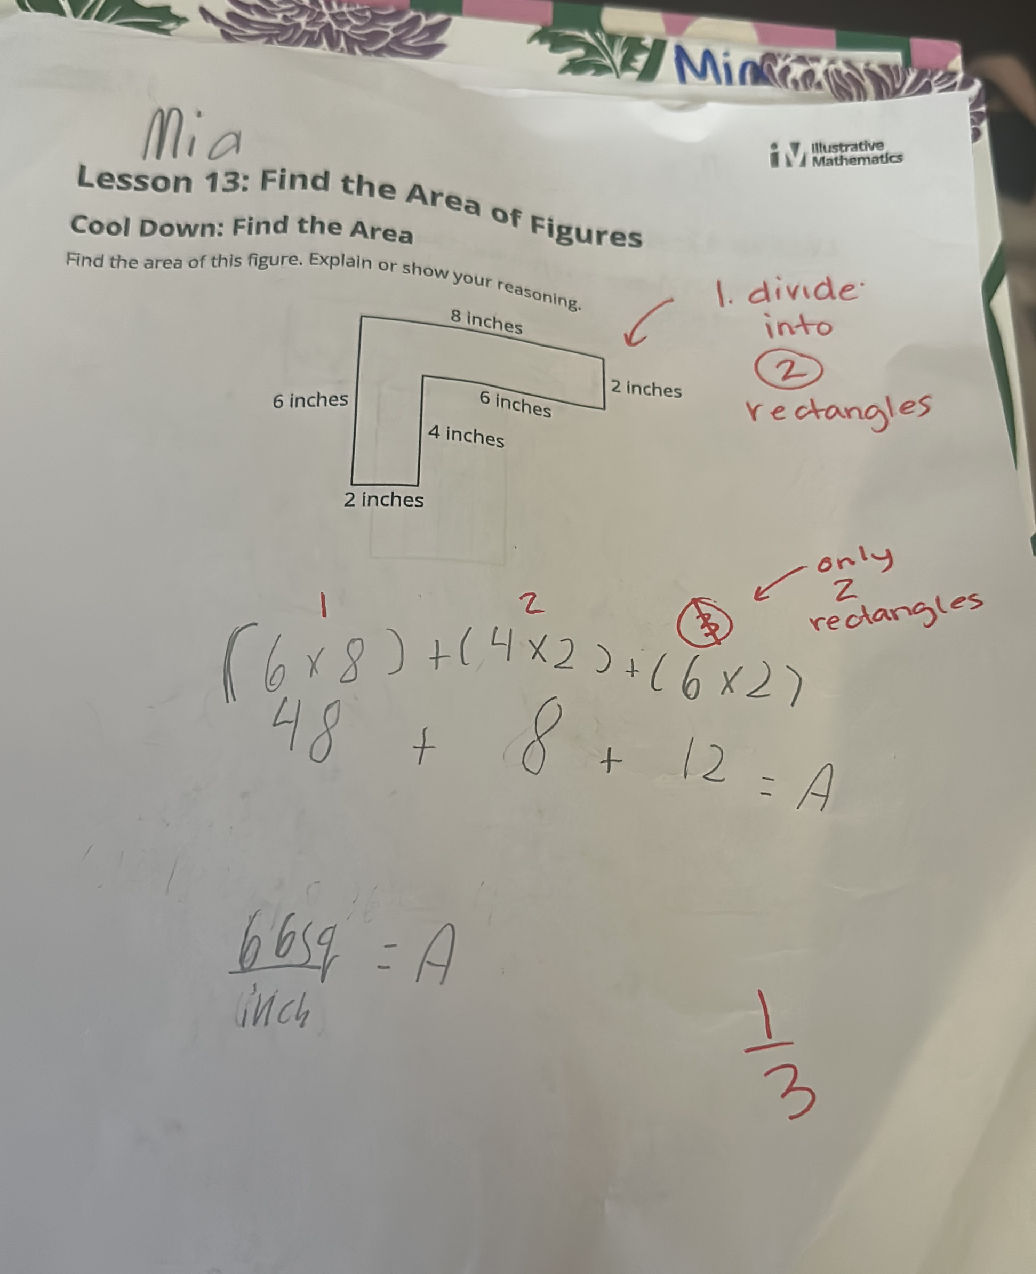 Mia
Mia
Illustrative
Mathematics
Lesson 13: Find the Area of Figures
Cool Down: Find the Area
Find the area of this figure. Explain or show your reasoning.
1. divide
into
2
rectangles
8 inches
2 inches
6 inches
6 inches
4 inches
2 inches
only
2
rectangles
1 2 3
(6 x 8) + (4 x 2) + (6 x 2)
48 + 8 + 12 = A
66sq = A
inch
1
3